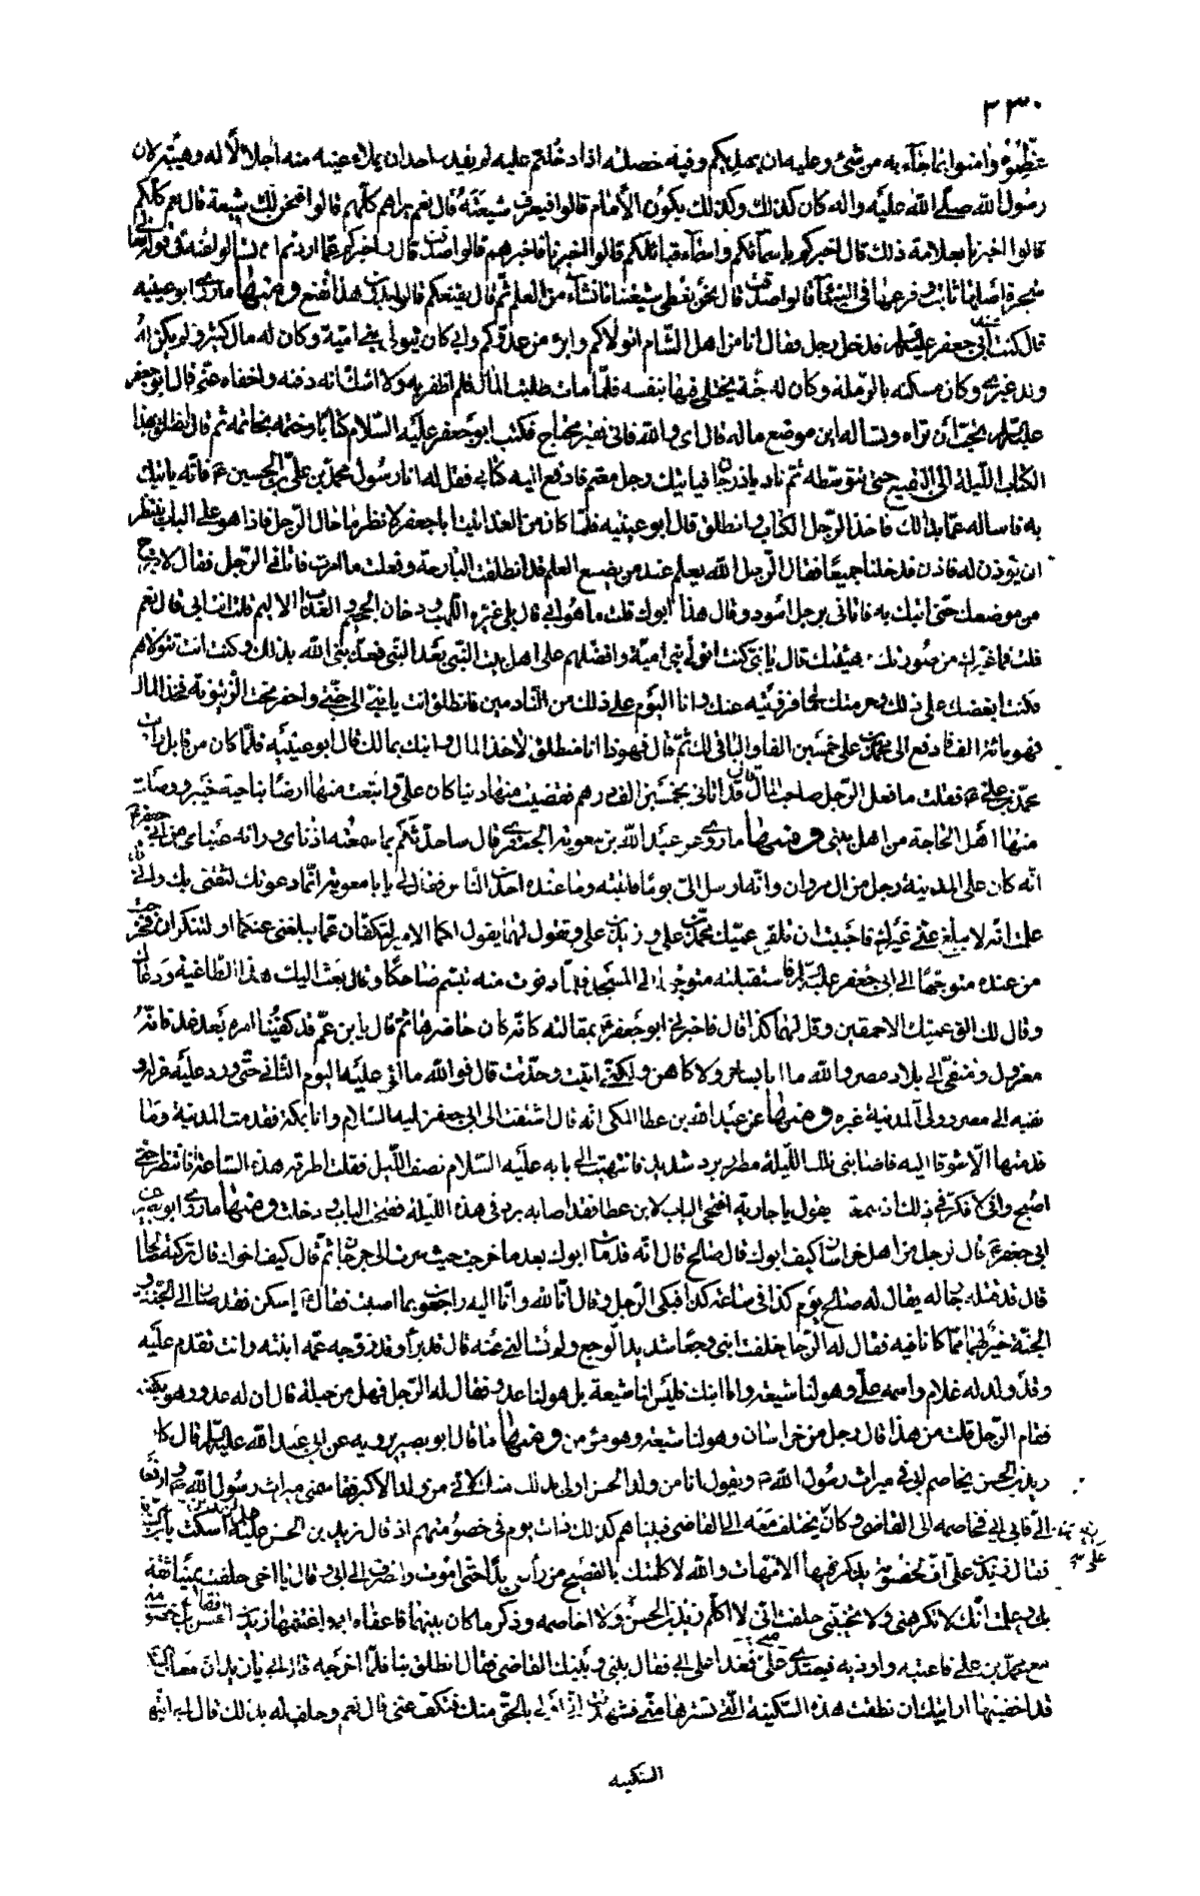 ٢٣٠
عظموه وامنوا بما جاء به من شئ وعليه ان يهديكم وفيه خصلة اذا دخلتم عليه لم يقدر احد ان يملاء عينه منه اجلالا له وهيبة لان
رسول الله صلى الله عليه واله كان كذلك وكذلك يكون الأمام قالوا فيعرف شيعته قال نعم يراهم كلهم قالوا فنحن لك شيعة قال نعم كلكم
قالوا اخبرنا بعلامة ذلك قال اخبركم باسمآئكم واسمآء قبائلكم قالوا اخبرنا فاخبرهم قالوا صدقت قال واخبركم عما اردتم ان تسالوا عنه في قوله تعالى
شجرة اصلها ثابت وفرعها في السمآء قالوا صدقت قال نحن نعطي شيعتنا ما نشآء من العلم ثم قال يقنعكم قالوا في دون هذا نقنع ومنها ما روى ابو عيينه
قال كنت عند ابي جعفر عليه السلم فدخل رجل وقال انا من اهل الشام اتولاكم وابرء من عدوكم وابي كان يتولى بني امية وكان له مال كثير ولم يكن له
ولد غيري وكان مسكنه بالرملة وكان له جنة يتخلى فيها بنفسه فلما مات طلبت المال فلم اظفر به ولا اشك انه دفنه واخفاه عني قال ابو جعفر
عليه السلم افتحب أن تراه وتساله اين موضع ماله قال اي والله فاني فقير محتاج فكتب ابو جعفر عليه السلام كتابا وختمه بخاتمه ثم قال انطلق بهذا
الكتاب الليلة الى البقيع حتى تتوسطه ثم ناد يا درجان فياتيك رجل معتم فادفع اليه كتابي فقل له انا رسول محمد بن علي بن الحسين ع فانه ياتيك
به فاساله عما بدا لك فاخذ الرجل الكتاب وانطلق قال ابو عيينه فلما كان من الغد اتيت ابا جعفر لانظر ما حال الرجل فاذا هو على الباب ينتظر
ان يوذن له فاذن فدخلنا جميعا فقال الرجل الله يعلم عند من يضع العلم قد انطلقت البارحة وفعلت ما امرت فاتاني الرجل فقال لا تبرح
من موضعك حتى اتيك به فاتاني برجل اسود وقال هذا ابوك قلت ما هو ابي قال بلى غيره اللهب ودخان الجحيم والعذاب الاليم قلت انت ابي قال نعم
قلت فما غيرك عن صورتك وهيئتك قال يا بني كنت اتولى بني امية وافضلهم على اهل بيت النبي بعد النبي فعذبني الله بذلك وكنت انت تتولاهم
وكنت ابغضك على ذلك وحرمتك مالي فزويته عنك وانا اليوم على ذلك من النادمين فانطلق انت يا بني الى جنتي واحفر تحت الزيتونة فخذ المال
فهو مائة الف فادفع الى محمد بن علي خمسين الفا والباقي لك ثم قال فهوذا انا منطلق لاخذ المال واتيك بمالك قال ابو عيينه فلما كان من قابل رايت
محمد بن علي ع فقلت ما فعل الرجل صاحب المال قال قد اتاني بخمسين الف درهم فقضيت منها دينا كان علي وابتعت منها ارضا بناحية خيبر ووصلت
منها اهل الحاجة من اهل بيتي ومنها ما روي عن عبد الله بن معوية الجعفري قال ساحدثكم بما سمعته اذناي وراته عيناي من ابي جعفر ع
انه كان على المدينة رجل من ال مروان وانه ارسل الي يوما فاتيته وما عنده احد من الناس فقال لي يا با معوية انما دعوتك لثقتي بك واني قد
علمت انه لا يبلغ عني غيرك فاحببت ان تلقى عميك محمد بن علي وزيد بن علي وتقول لهما يقول لكما الامير لتكفان عما يبلغني عنكما او لتنكران فخرجت
من عنده متوجها الى ابي جعفر عليه السلم فاستقبلته متوجها الى المسجد فلما دنوت منه تبسم ضاحكا وقال بعث اليك هذا الطاغية ودعاك
وقال لك الق عميك الاحمقين وقل لهما كذا قال فاخبرني ابو جعفر ع بمقالته كانه كان حاضرها ثم قال يا بن عم قد كفينا امره بعد غد فانه
معزول ومنفي الى بلاد مصر والله ما انا بساحر ولا كاهن ولكني اتيت وحدثت قال فوالله ما اتى عليه اليوم الثاني حتى ورد عليه عزله و
نفيه الى مصر وولى المدينة غيره ومنها عن عبد الله بن عطا المكي انه قال اشتقت الى ابي جعفر عليه السلام وانا بمكة فقدمت المدينة وما
قدمتها الا شوقا اليه فاصابني تلك الليلة مطر وبرد شديد فانتهيت الى بابه عليه السلام نصف الليل فقلت اطرقه هذه الساعة او انتظر حتى
اصبح واني لافكر في ذلك اذ سمعته يقول يا جارية افتحي الباب لابن عطا فقد اصابه برد في هذه الليلة ففتحت الباب ودخلت ومنها ما روى ابو بصير عن
ابي جعفر ع قال لرجل من اهل خراسان كيف ابوك قال صالح قال انه قد مات ابوك بعد ما خرجت حيث سرت الى جرجان ثم قال كيف اخوك قال تركته صالحا
قال قد قتله جار له يقال له صالح يوم كذا في ساعة كذا فبكى الرجل وقال انا لله وانا اليه راجعون بما اصبت فقال ع اسكن فقد صار الى الجنة و
الجنة خير لهما مما كانا فيه فقال له الرجل اني خلفت ابني وجعا شديد الوجع ولم تسالني عنه قال قد برأ وقد زوجه عمه ابنته وانت تقدم عليه
وقد ولد له غلام واسمه علي وهو لنا شيعة واما ابنك فليس لنا شيعة بل هو لنا عدو فقال له الرجل فهل من حيلة قال ان له عدو وهو يكفيه
فقام الرجل قلت من هذا قال رجل من خراسان وهو لنا شيعة وهو مؤمن ومنها ما قال ابو بصير يرويه عن ابي عبد الله عليه السلم قال كان
زيد بن الحسن يخاصم ابي في ميراث رسول الله ص ويقول انا من ولد الحسن اولى بذلك منك لاني من ولد الاكبر فقاسمني ميراث رسول الله ص وادفعه
الي فابى ابي فخاصمه الى القاضي وكان يختلف معه الى القاضي فبينا هم كذلك ذات يوم في خصومتهم اذ قال زيد بن الحسن لزيد بن علي اسكت يا بن السندية
فقال زيد بن علي اف لخصومة يذكر فيها الامهات والله لا كلمتك بالفصيح من راسي ابدا حتى اموت وانصرف الى ابي وقال يا اخي حلفت بيمين ثقة
بك وعلمت انك لا تكرهني ولا تخيبني حلفت اني لا اكلم زيد بن الحسن ولا اخاصمه وذكر ما كان بينهما فاعفاه ابي واغتنمها زيد بن الحسن فقال يلي خصومتي
مع محمد بن علي فاعتبه واوذيه فيعتدي علي فعدا على ابي فقال بيني وبينك القاضي فقال انطلق بنا فلما اخرجه قال ابي يا زيد ان معك سكينة
قد اخفيتها ارايتك ان نطقت هذه السكينة التي تسترها مني فشهدت اني اولى بالحق منك فتكف عني قال نعم وحلف له بذلك فقال ابي ايتها
السكينه